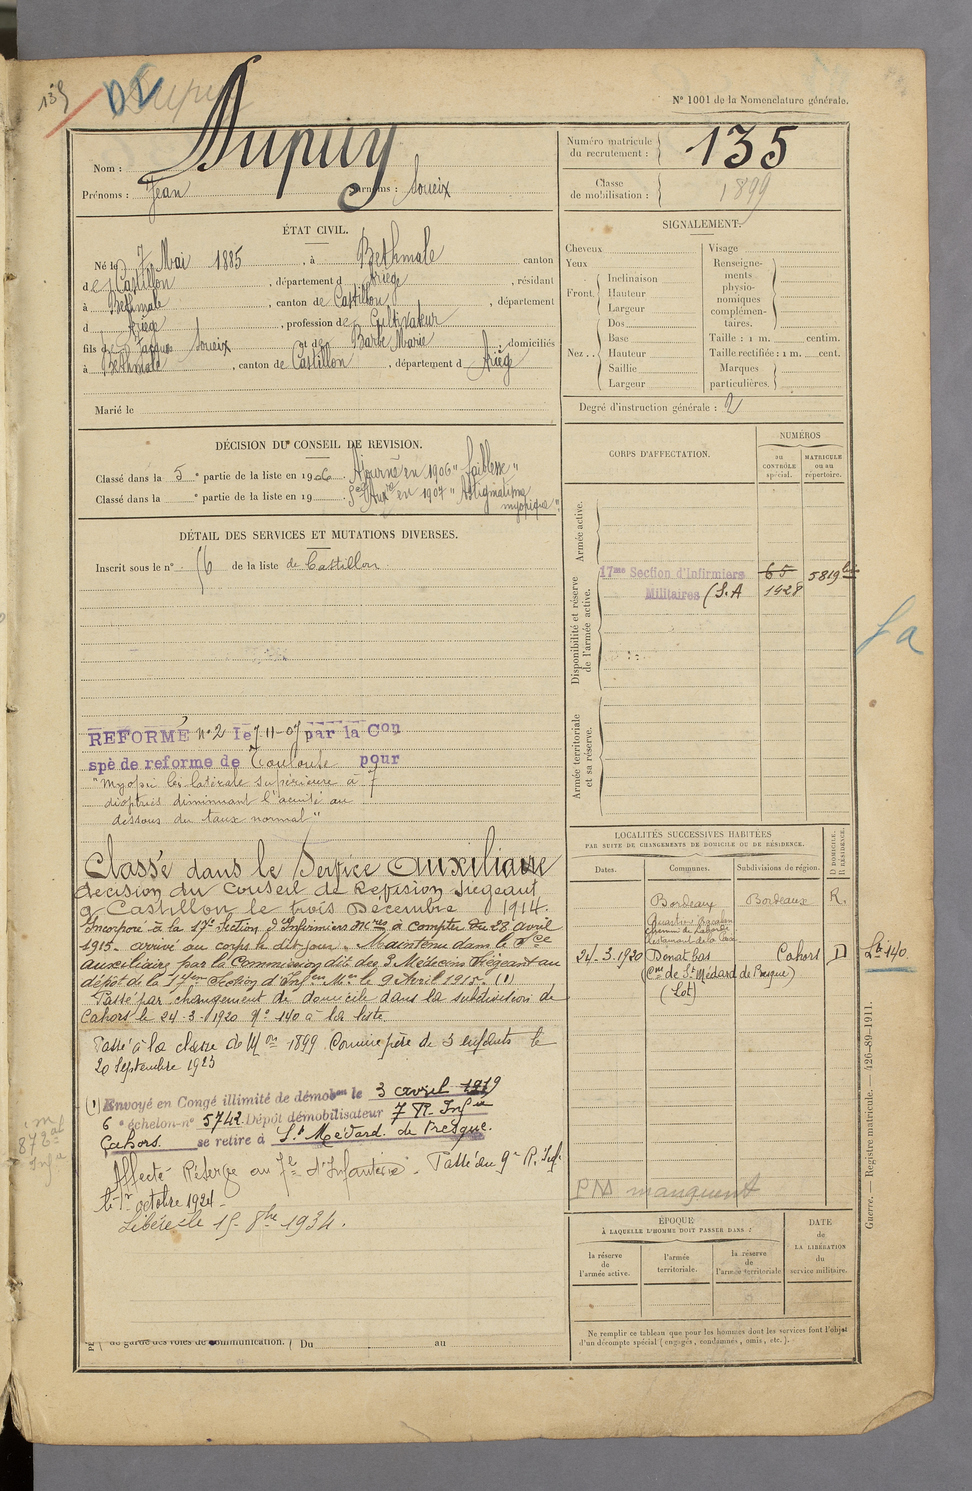 135
Dupuy
N° 1001 de la Nomenclature générale.
Nom : Dupuy
Prénoms : Jean Surnoms : Soueix
Numéro matricule du recrutement : 135
Classe de mobilisation : 1899
ÉTAT CIVIL.
Né le 7 Mai 1885, à Bethmale canton
de Castillon, département d Ariège, résidant
à Bethmale, canton de Castillon, département
d Ariège, profession de Cultivateur
fils de Jacques Soueix et de Barbe Marie domiciliés
à Bethmale, canton de Castillon, département d Ariège
Marié le
SIGNALEMENT.
Cheveux
Yeux
Front. Inclinaison
Hauteur
Largeur
Nez. Dos
Base
Hauteur
Saillie
Largeur
Visage
Renseigne-
ments
physio-
nomiques
complémen-
taires.
Taille : 1 m. centim.
Taille rectifiée : 1 m. cent.
Marques
particulières.
Degré d'instruction générale : 2
DÉCISION DU CONSEIL DE REVISION.
Classé dans la 5e partie de la liste en 1906. Ajourné en 1906 "faiblesse"
Classé dans la e partie de la liste en 19 . Sce Auxre en 1907 "Astigmatisme
myopique"
DÉTAIL DES SERVICES ET MUTATIONS DIVERSES.
Inscrit sous le n° 56 de la liste de Castillon
REFORMÉ n° 2 le 7-11-07 par la Con
spè de reforme de Toulouse pour
"myopie bilatérale supérieure à 7
dioptries diminuant l'acuité au
dessous du taux normal"
Classé dans le Service Auxiliaire
décision du Conseil de Revision siégeant
à Castillon le trois Décembre 1914.
Incorporé à la 17e Section d'Infirmiers Mres à compter du 28 avril
1915. arrivé au corps le dit jour. Maintenu dans le Sce
auxiliaire par la Commission dite des 3 Médecins siégeant au
dépôt de la 17eme Section d'Infen Mre le 9 Avril 1915. (1)
Passé par changement de domicile dans la subdivision de
Cahors le 24-3-1920 N° 140 à la liste.
Passé à la classe de Mon 1899 Comme père de 3 enfants le
20 Septembre 1923
(1) Envoyé en Congé illimité de démobon le 3 avril 1919
6e échelon n° 5742 Dépôt démobilisateur 7 R. Infie
Cahors se retire à St Médard de Presque.
Affecté Réserve au 7e d'Infanterie. Passé au 9e R. Inf.
le 1er octobre 1924.
Libéré le 15 8bre 1934.
au garde des voies de communication. Du au
CORPS D'AFFECTATION.
NUMÉROS
au
CONTRÔLE
spécial.
MATRICULE
ou au
répertoire.
Armée active.
Disponibilité et réserve
de l'armée active.
17me Section d'Infirmiers 65 5819 bis
Militaires (S.A 1428
Armée territoriale
et sa réserve.
LOCALITÉS SUCCESSIVES HABITÉES
PAR SUITE DE CHANGEMENTS DE DOMICILE OU DE RÉSIDENCE.
D DOMICILE.
R RÉSIDENCE.
Dates. Communes. Subdivisions de région.
Bordeaux Bordeaux R.
24-3-1920 Donat bas Cahors D
(Cne de St Médard de Presque)
(Lot)
Lt 140
PM manquent
ÉPOQUE
À LAQUELLE L'HOMME DOIT PASSER DANS :
la réserve
de
l'armée active.
l'armée
territoriale.
la réserve
de
l'armée territoriale
DATE
de
LA LIBÉRATION
du
service militaire.
Ne remplir ce tableau que pour les hommes dont les services font l'objet
d'un décompte spécial (engagés, condamnés, omis, etc.).
Guerre. — Registre matricule. — 426-89-1911.